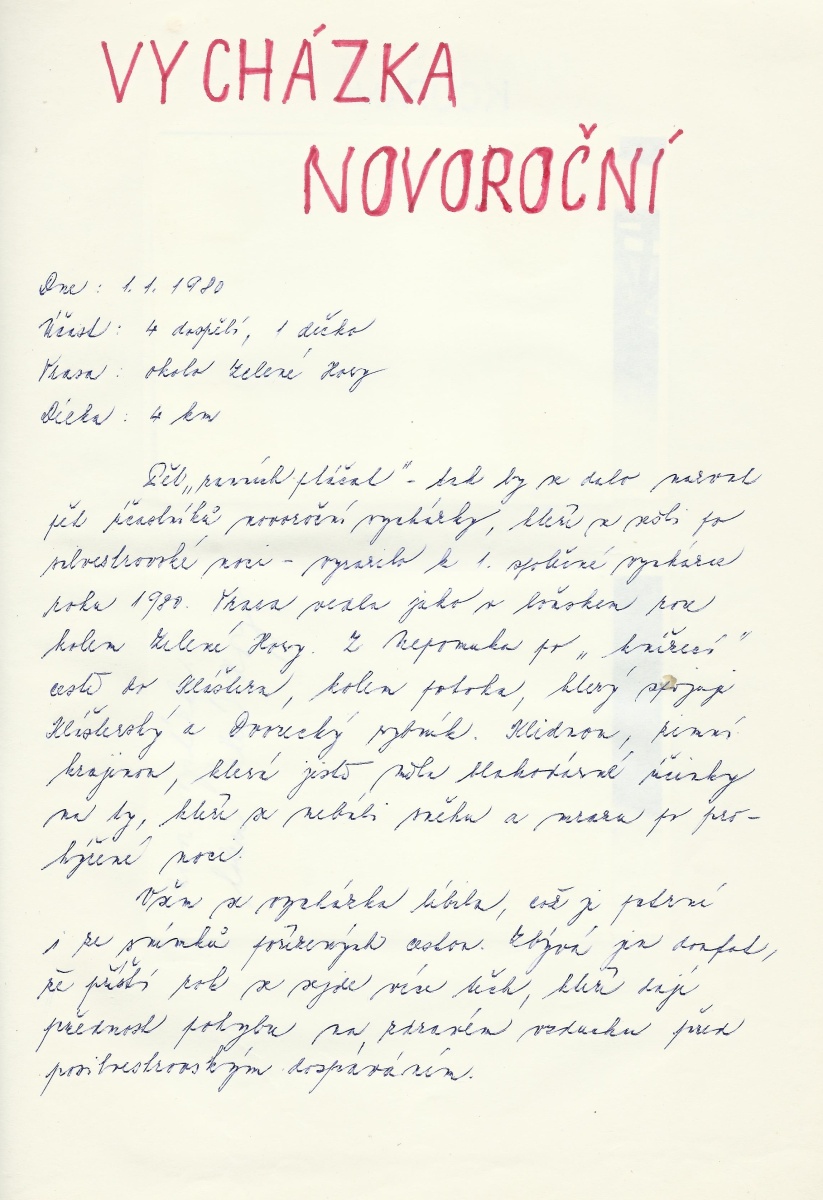 VYCHÁZKA
NOVOROČNÍ
Dne : 1. 1. 1980
Účast : 4 dospělí, 1 děcko
Trasa : okolo Zelené Hory
Délka : 4 km
Pět „ranních ptáčat" - tak by se dalo nazvat
pět účastníků novoroční vycházky, kteří se sešli po
silvestrovské noci - vyrazilo k 1. společné vycházce
roku 1980. Trasa vedla jako v loňském roce
kolem Zelené Hory. Z Nepomuka po „knížecí"
cestě do Kláštera, kolem potoka, který spojuje
Klášterský a Dvorecký rybník. Klidnou, zimní
krajinou, která jistě měla blahodárné účinky
na ty, kteří se nebáli sněhu a mrazu po pro-
hýřené noci.
Všem se vycházka líbila, což je patrné
i ze snímků pořízených cestou. Zbývá jen doufat,
že příští rok se sejde více těch, kteří dají
přednost pohybu na zdravém vzduchu před
posilvestrovským dospáváním.